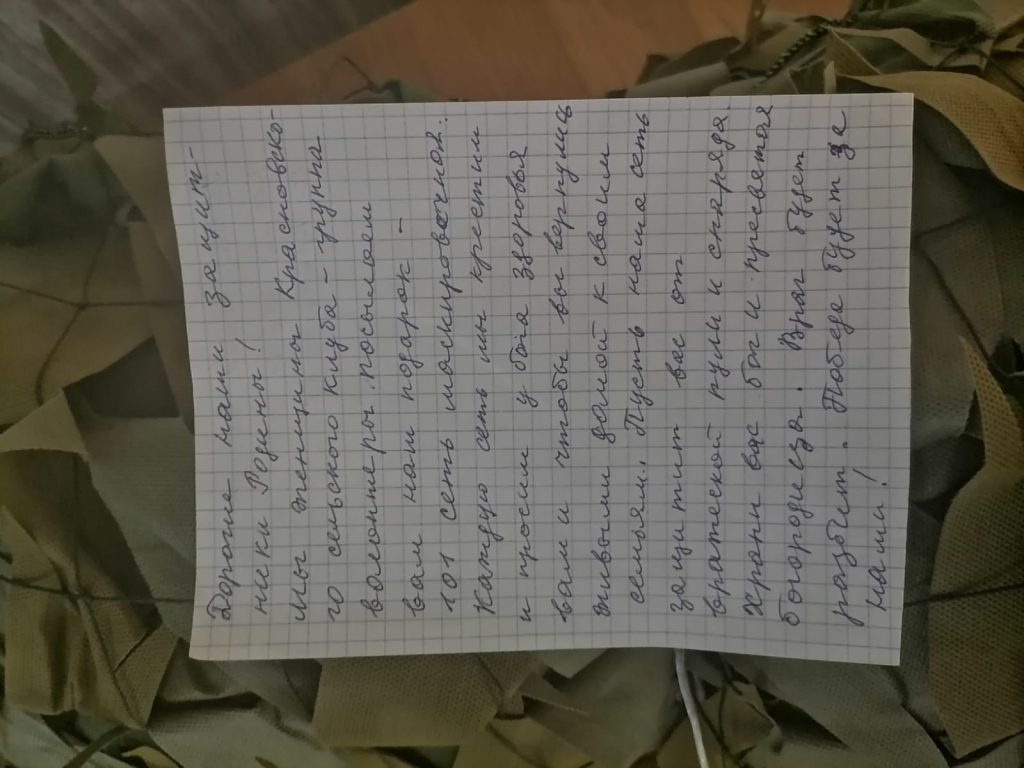 Дорогие наши защит-
ники Родины!
Мы женщины Красновско-
го сельского клуба - группа
волонтеры посылаем
вам наш подарок -
101 сеть маскировочная.
Каждую сеть мы крестим
и просим у бога здоровья
вам и чтобы вы вернулись
живыми домой к своим
семьям. Пусть наша сеть
защитит вас от
вражеской пули и снаряда
Храни вас бог и пресвятая
богородиеца. Враг будет
разбит. Победа будет за
нами!